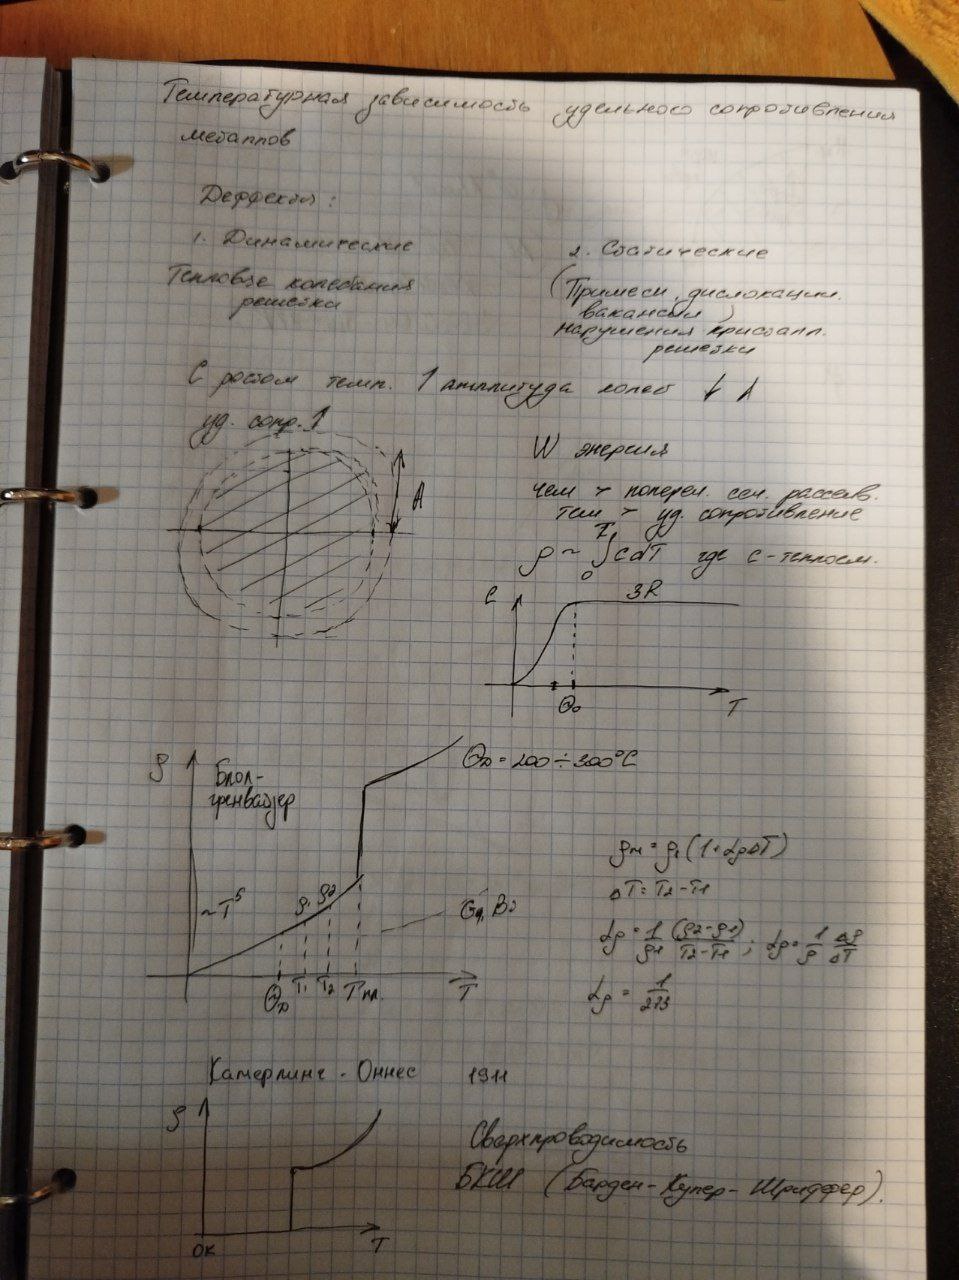 Температурная зависимость удельного сопротивления
металлов
Деффекты:
1. Динамические
Тепловые колебания
решетки
2. Статические
(Примеси, дислокации,
вакансии,
нарушения кристалл.
решетки
С ростом темп. ↑ амплитуда колеб ↓ λ
уд. сопр. ↑
A
W энергия
чем > попереч. сеч. рассеив.
тем > уд. сопротивление
ρ ~ ∫₀ᵀ c dT где c - теплоем.
C
3R
Θ₀
T
ρ
Блох-
грюнвайзер
ΘD = 200 ÷ 300°C
~T⁵
ρ₁ ρ₂
ΘD T₁ T₂ Tпл. T
ρн = ρ₁(1+αρΔT)
ΔT = T₂ - T₁
αρ = 1/ρ₁ (ρ₂-ρ₁)/(T₂-T₁) ; αρ = 1/ρ Δρ/ΔT
αρ = 1/273
Камерлинг - Оннес 1911
ρ
0K
T
Сверхпроводимость
БКШ (Барден-Купер-Шриффер).